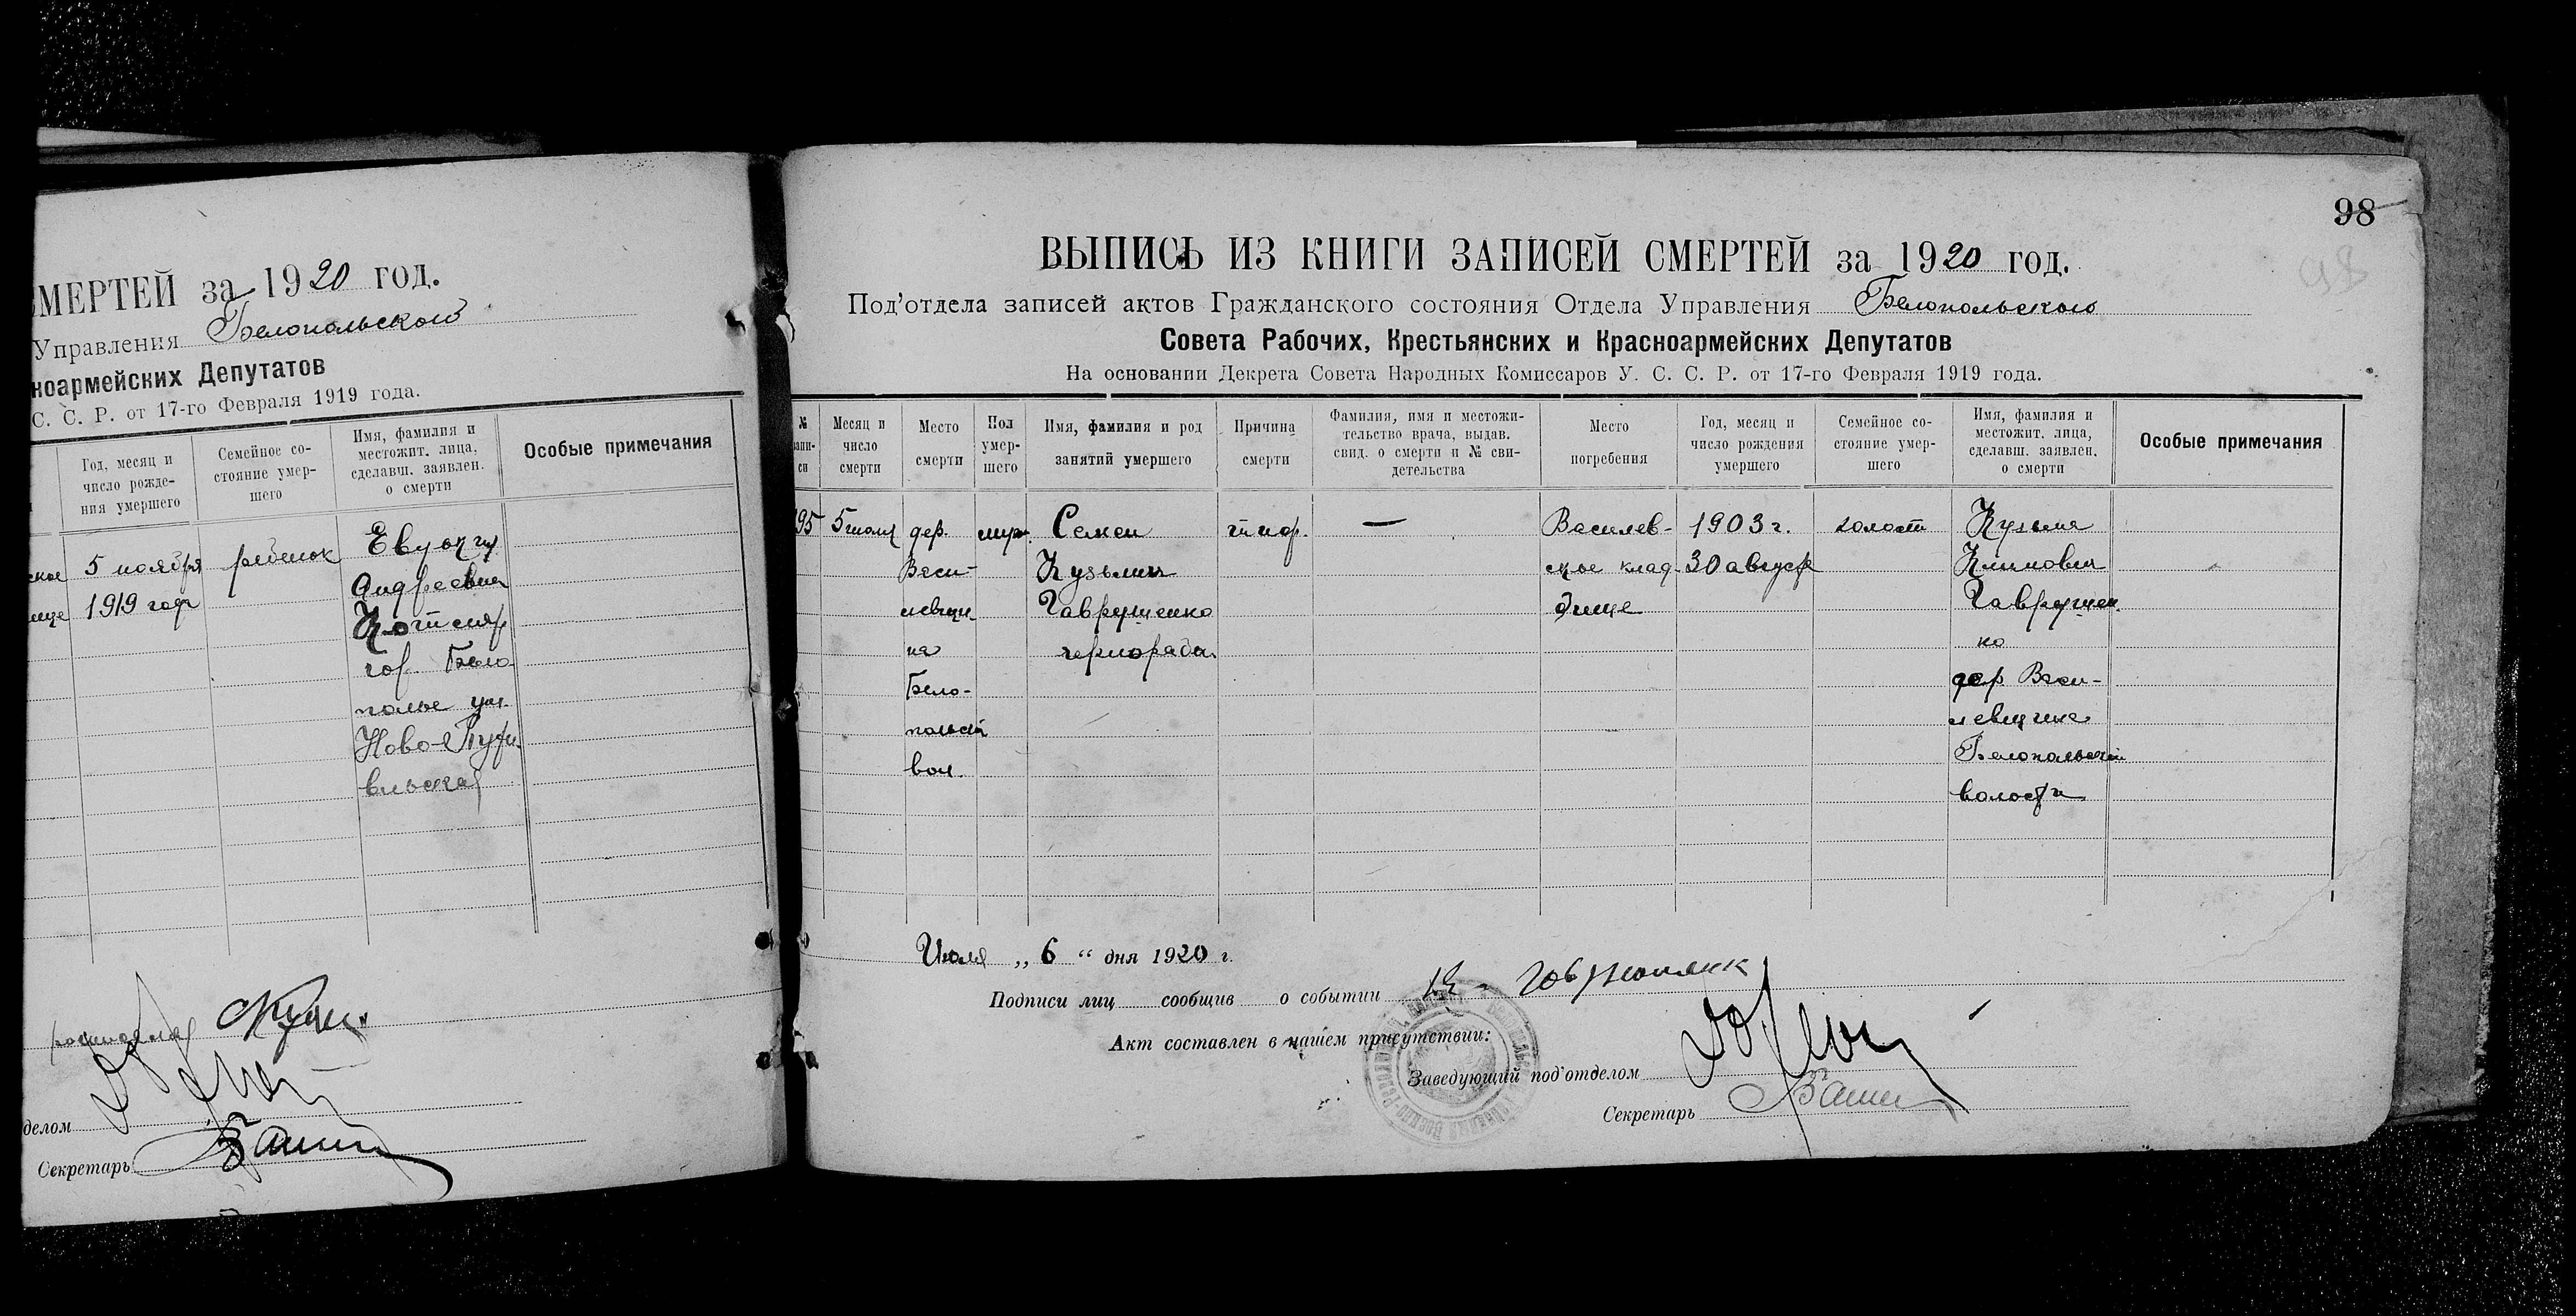 МЕРТЕЙ за 1920 год.
Управления Белопольского
ноармейских Депутатов
С. С. Р. от 17-го Февраля 1919 года.
Год, месяц и число рождения умершего
Семейное состояние умершего
Имя, фамилия и местожит. лица, сделавш. заявлен. о смерти
Особые примечания
ское 5 ноября ребенок
1919 года
Андреевна
гор. Бело-
полье ул.
Ново-Пути-
вльская
делом
Секретарь
98
98
ВЫПИСЬ ИЗ КНИГИ ЗАПИСЕЙ СМЕРТЕЙ за 1920 год.
Под'отдела записей актов Гражданского состояния Отдела Управления Белопольского
Совета Рабочих, Крестьянских и Красноармейских Депутатов
На основании Декрета Совета Народных Комиссаров У. С. С. Р. от 17-го Февраля 1919 года.
№ записи
Месяц и число смерти
Место смерти
Пол умершего
Имя, фамилия и род занятий умершего
Причина смерти
Фамилия, имя и местожительство врача, выдав. свид. о смерти и № свидетельства
Место погребения
Год, месяц и число рождения умершего
Семейное состояние умершего
Имя, фамилия и местожит. лица, сделавш. заявлен. о смерти
Особые примечания
95 5 июля дер. муж. Семен тиф. — Василев- 1903 г. холост Кузьма
Васи- Кузьмич ское клад- 30 август Климович
левщи- Гаврушенко бище Гаврушен-
на чернораб. ко
Бело- дер Васи-
польск левщина
вол. Белопольской
волости
Июля „ 6 “ дня 1920 г.
Подписи лиц сообщив о событии
Акт составлен в нашем присутствии:
Заведующий под'отделом
Секретарь